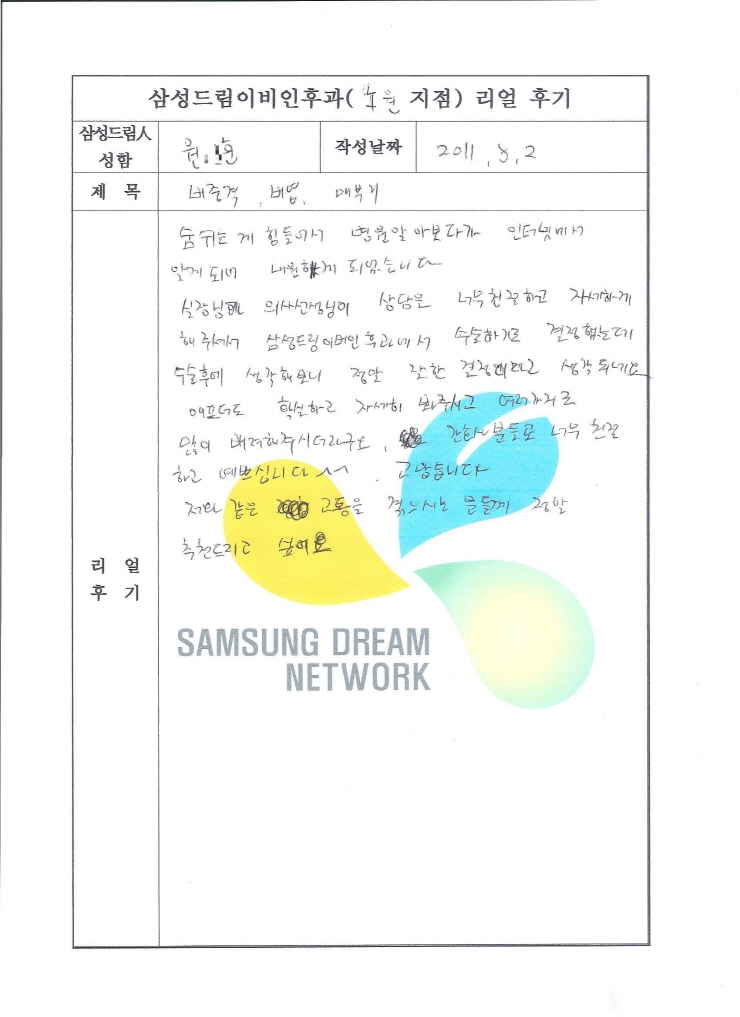 삼성드림이비인후과( 노원 지점) 리얼 후기
삼성드림人 성함
작성날짜 2011, 8, 2
제 목 비중격, 비염, 매부리
숨쉬는 게 힘들어서 병원알아봤다가 인터넷에서
알게 되어 내원하게 되었습니다
실장님과 의사선생님이 상담은 너무친절하고 자세하게
해주셔서 삼성드림이비인후과에서 수술하기로 결정했는데
수술후에 생각해보니 정말 잘한 결정이라고 생각되네요
애프터도 확실하고 자세히 봐주시고 여러가지로
많이 배려해주시더라구요, 간호사분들도 너무 친절
하고 예쁘십니다~ . 고맙습니다
저와 같은 고통을 겪으시는 분들께 정말
추천드리고 싶어요
리 얼
후 기
SAMSUNG DREAM
NETWORK